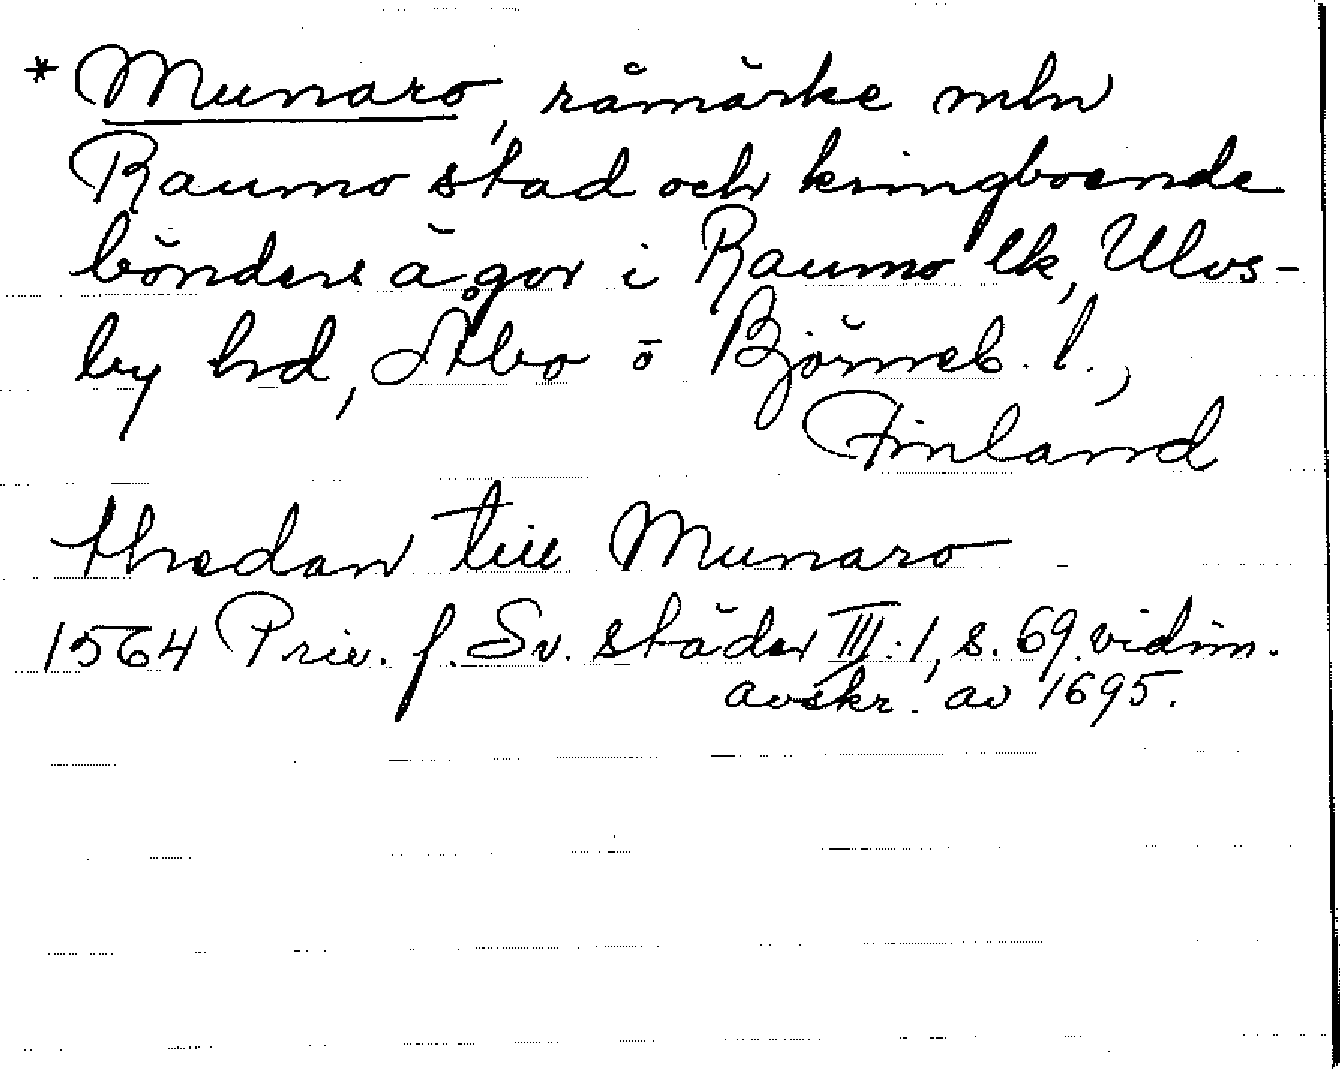 * Munaro, råmärke mln
Raumo stad och kringboende
bönders ägor i Raumo lk, Ulvs-
by hd, Åbo o Björneb. l.,
Finland
thedan till Munaro
1564 Priv. f. Sv. städer III:1, s. 69. vidim.
avskr. av 1695.